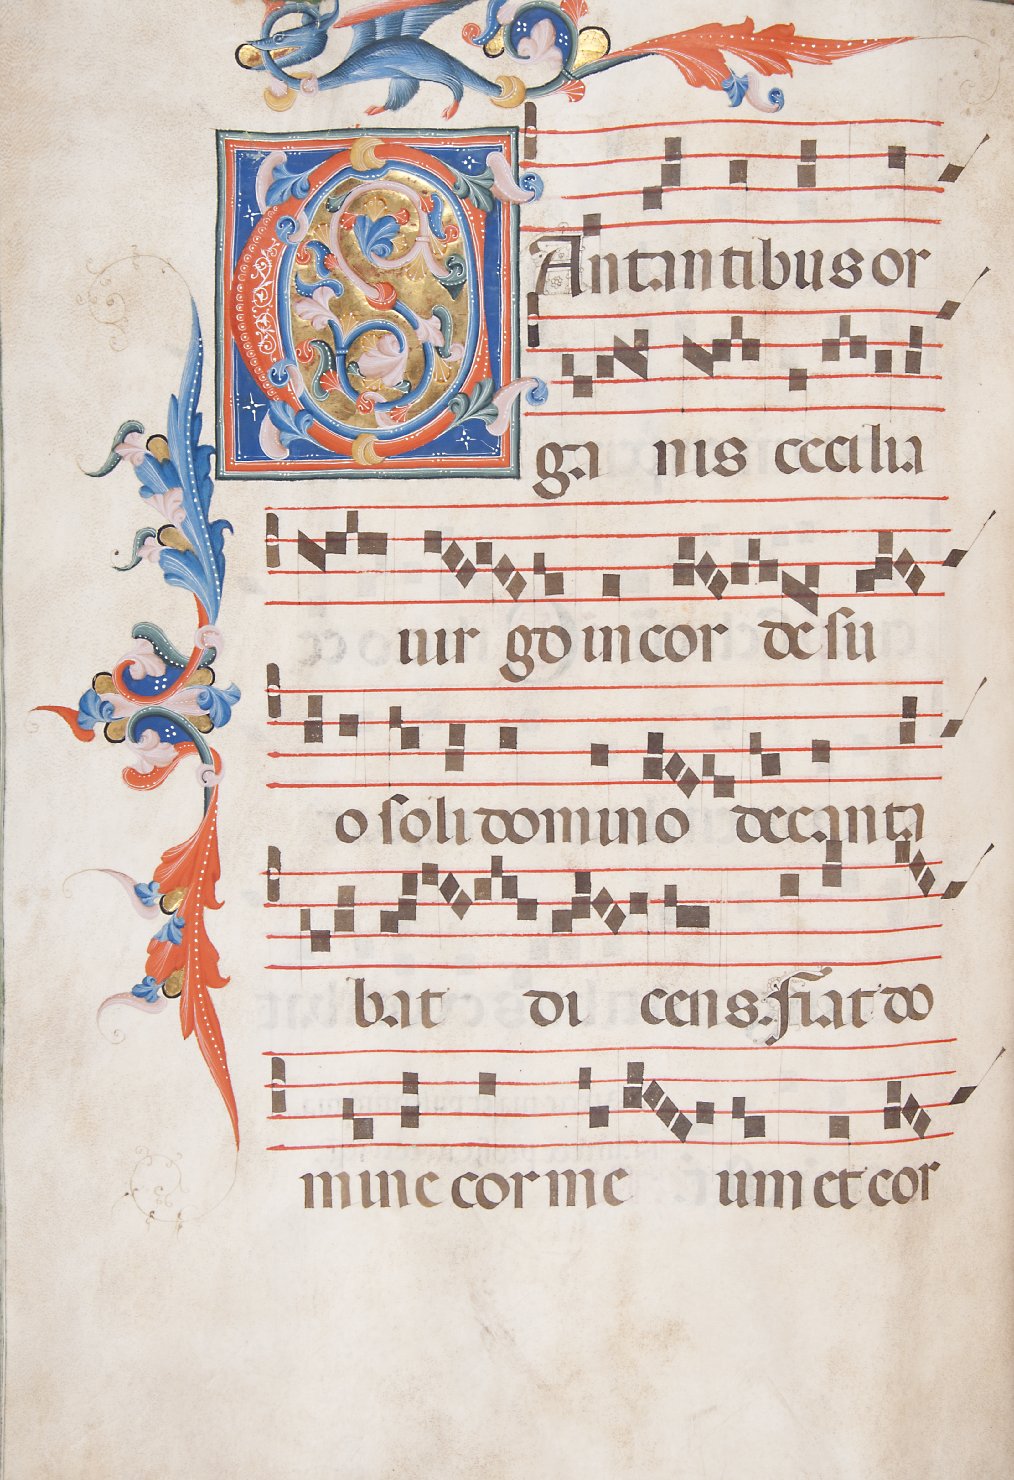 CAntantibus or
ga nis cecilia
vir go in cor de su
o soli domino decanta
bat di cens. fiat do
mine cor me um et cor